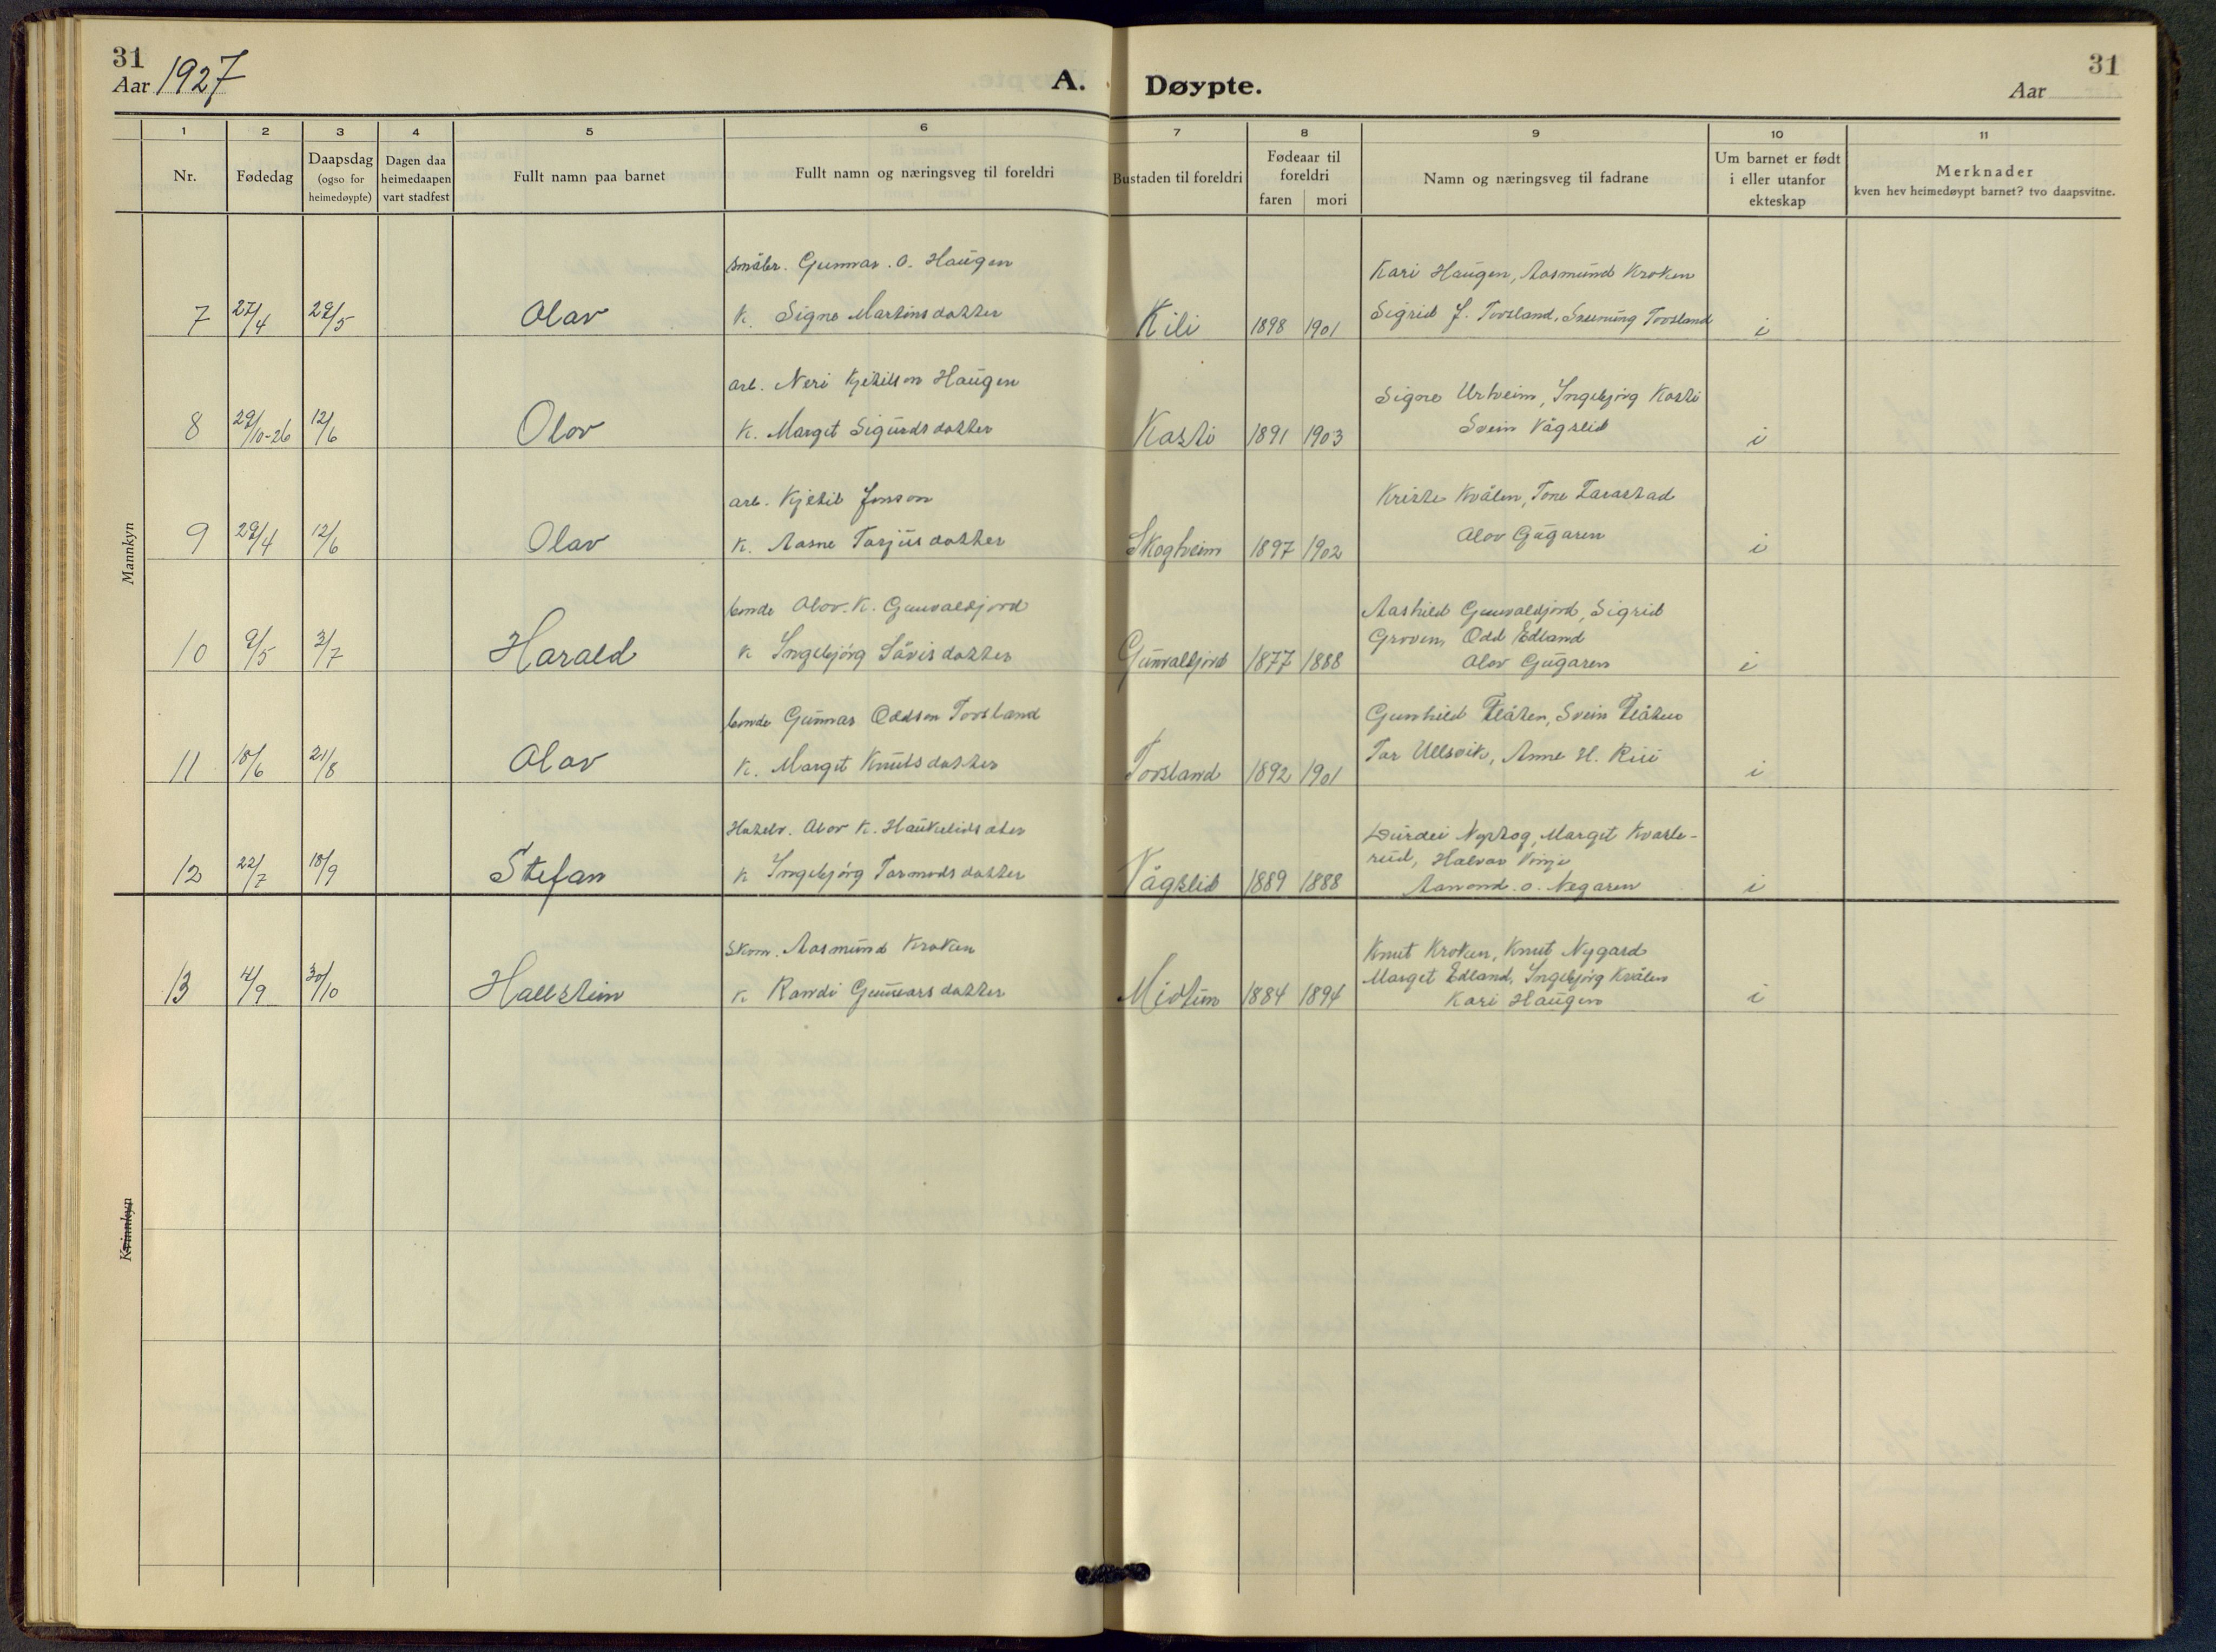 31
Aar 1927
A. Døypte.
31
Aar
1 2 3 4 5 6 7 8 9 10 11
Nr.
Fødedag
Daapsdag
(ogso for
heimedøypte)
Dagen daa
heimedaapen
vart stadfest
Fullt namn paa barnet
Fullt namn og næringsveg til foreldri
Bustaden til foreldri
Fødeaar til
foreldri
faren mori
Namn og næringsveg til fadrane
Um barnet er født
i eller utanfor
ekteskap
Merknader
kven hev heimedøypt barnet? tvo daapsvitne.
Mannkyn
småbr. Gunnar. O. Haugen
Kari Haugen, Aasmund Kroken
7 27/4 29/5 Olav K. Signe Martinsdotter Kili 1898 1901 Sigrid J. Tovsland, Tovsland i
arb. Neri Kjetilson Haugen
Signe Urheim, Ingebjørg Kosti
8 29/10-26 12/6 Olov K. Marget Sigurdsdotter Kosti 1891 1903 Svein Vågslid i
arb. Kjetil Jonson
Kriste Kvålen, Tone Tarastad
9 29/4 12/6 Olav K. Aasne Tarjeisdotter Skogheim 1897 1902 Olov Gugaren i
bonde Olov. K. Gunvaldjord
Aashild Gunvaldjord, Sigrid
Groven, Odd Edland
10 9/5 3/7 Harald K Ingebjørg Sdotter Gunvaldjord 1877 1888 Olov Gugaren i
bonde Gunnar Oddson Tovsland
Gunhild Flåten, Svein Flåten
11 18/6 21/8 Olav K. Margit Knutsdotter Tovsland 1892 1901 Tor Ullsvik, Anne H. Rui i
Hotelv. Olov K. Haukelidsæter
Durdei Nystog, Marget Kvaste-
rud, Halvor Vinje
12 22/7 18/9 Stefan K Ingebjørg Tormodsdotter Vågslid 1889 1888 Aamond. O. Negaren i
Skom. Aasmund Kroken
Knut Kroken, Knut Nygard
Marget Edland, Ingebjørg Kvålen
13 4/9 30/10 Hallstein K Randi Gunnarsdotter Midtun 1884 1894 Kari Haugen i
Kvinnkyn